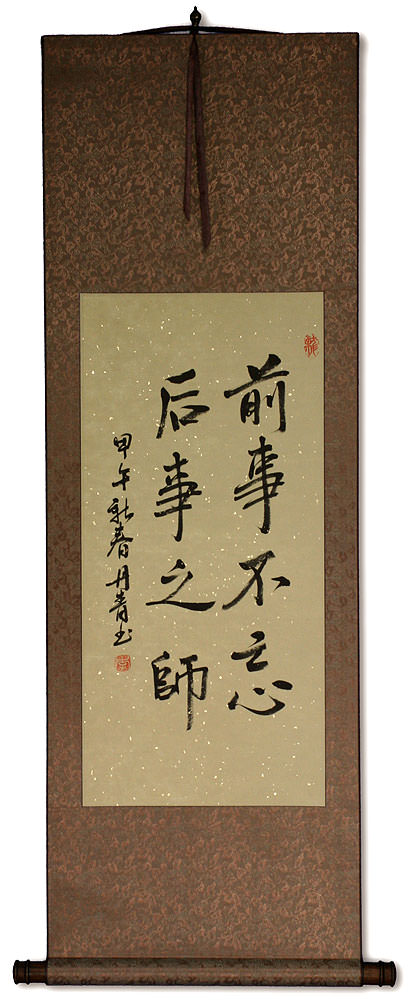 前事不忘
后事之師
甲午新春丹青书